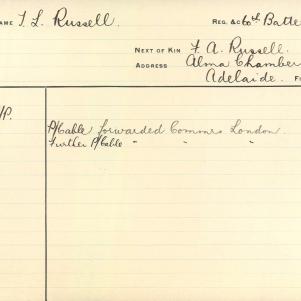 NAME T. L. Russell. REG. &C 60th Batte
NEXT OF KIN F. A. Russell.
ADDRESS Alma Chamber
Adelaide.
P/Cable forwarded Commrs London.
Further P/Cable " " "